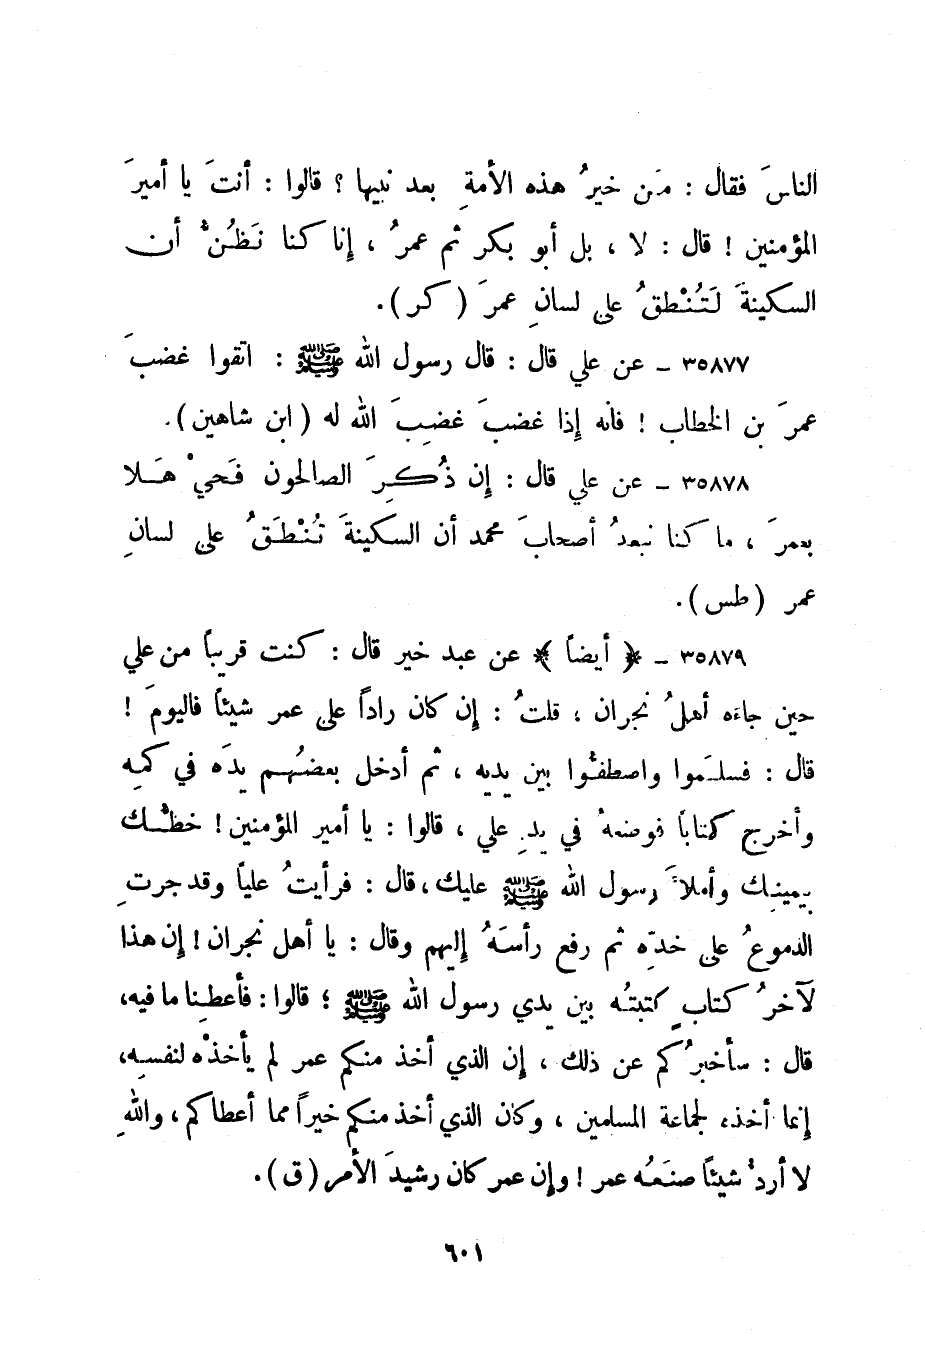 الناسَ فقال : مَن خيرُ هذه الأمةِ بعد نبيها ؟ قالوا : أنتَ يا أميرَ
المؤمنين ! قال : لا ، بل أبو بكر ثم عمرُ ، إنا كنا نَظُنُّ أن
السكينةَ لَتُنْطِقُ على لسانِ عمرَ ( كر ) .
٣٥٨٧٧ ـ عن علي قال : قال رسول الله ﷺ : اتقوا غضبَ
عمرَ بن الخطاب ! فانه إذا غضبَ غضِبَ الله له ( ابن شاهين ) .
٣٥٨٧٨ ـ عن علي قال : إن ذُكِرَ الصالحون فَحيْ هَلا
بعمرَ ، ما كنا نبعدُ أصحابَ محمد أن السكينةَ تُنْطِقُ على لسانِ
عمر ( طس ) .
٣٥٨٧٩ ـ ﴿ أيضاً ﴾ عن عبد خير قال : كنت قريباً من علي
حين جاءَه أهلُ نجران ، قلتُ : إن كان راداً على عمر شيئاً فاليومَ !
قال : فسلَّموا واصطفُّوا بين يديه ، ثم أدخل بعضُهم يدَه في كمِه
وأخرج كتاباً فوضعهُ في يدِ علي ، قالوا : يا أمير المؤمنين ! خطُّك
بيمينِك وأملاَ رسول الله ﷺ عليك ، قال : فرأيتُ علياً وقد جرتِ
الدموعُ على خدِّه ثم رفع رأسَهُ إليهم وقال : يا أهل نجران ! إن هذا
لآخرُ كتابٍ كتبتُه بين يدي رسول الله ﷺ ؛ قالوا : فأعطِنا ما فيه ،
قال : سأخبرُكم عن ذلك ، إن الذي أخذ منكم عمر لم يأخذْه لنفسِه ،
إنما أخذه لجماعة المسلمين ، وكان الذي أخذ منكم خيراً مما أعطاكم ، واللهِ
لا أردُّ شيئاً صنَعُه عمر ! وإن عمر كان رشيدَ الأمر ( ق ) .
٦٠١